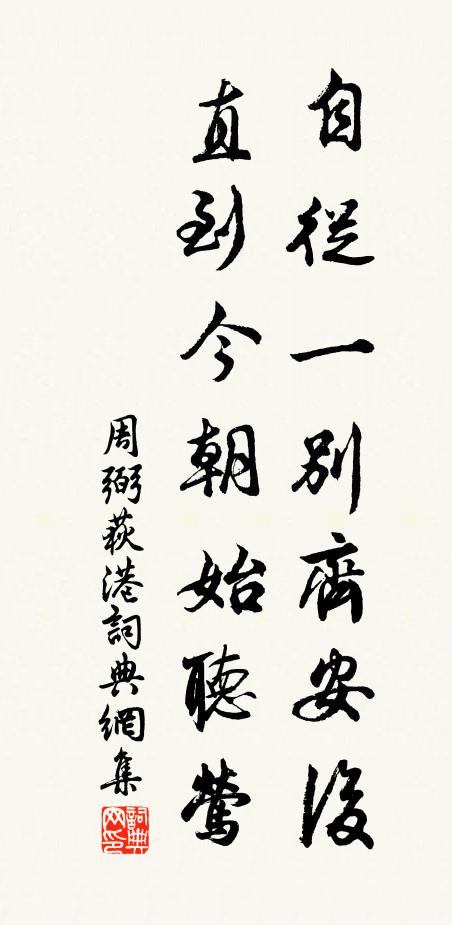 自從一別齊安後
直到今朝始聽鶯
周弼萩港詞典網集
詞典网印